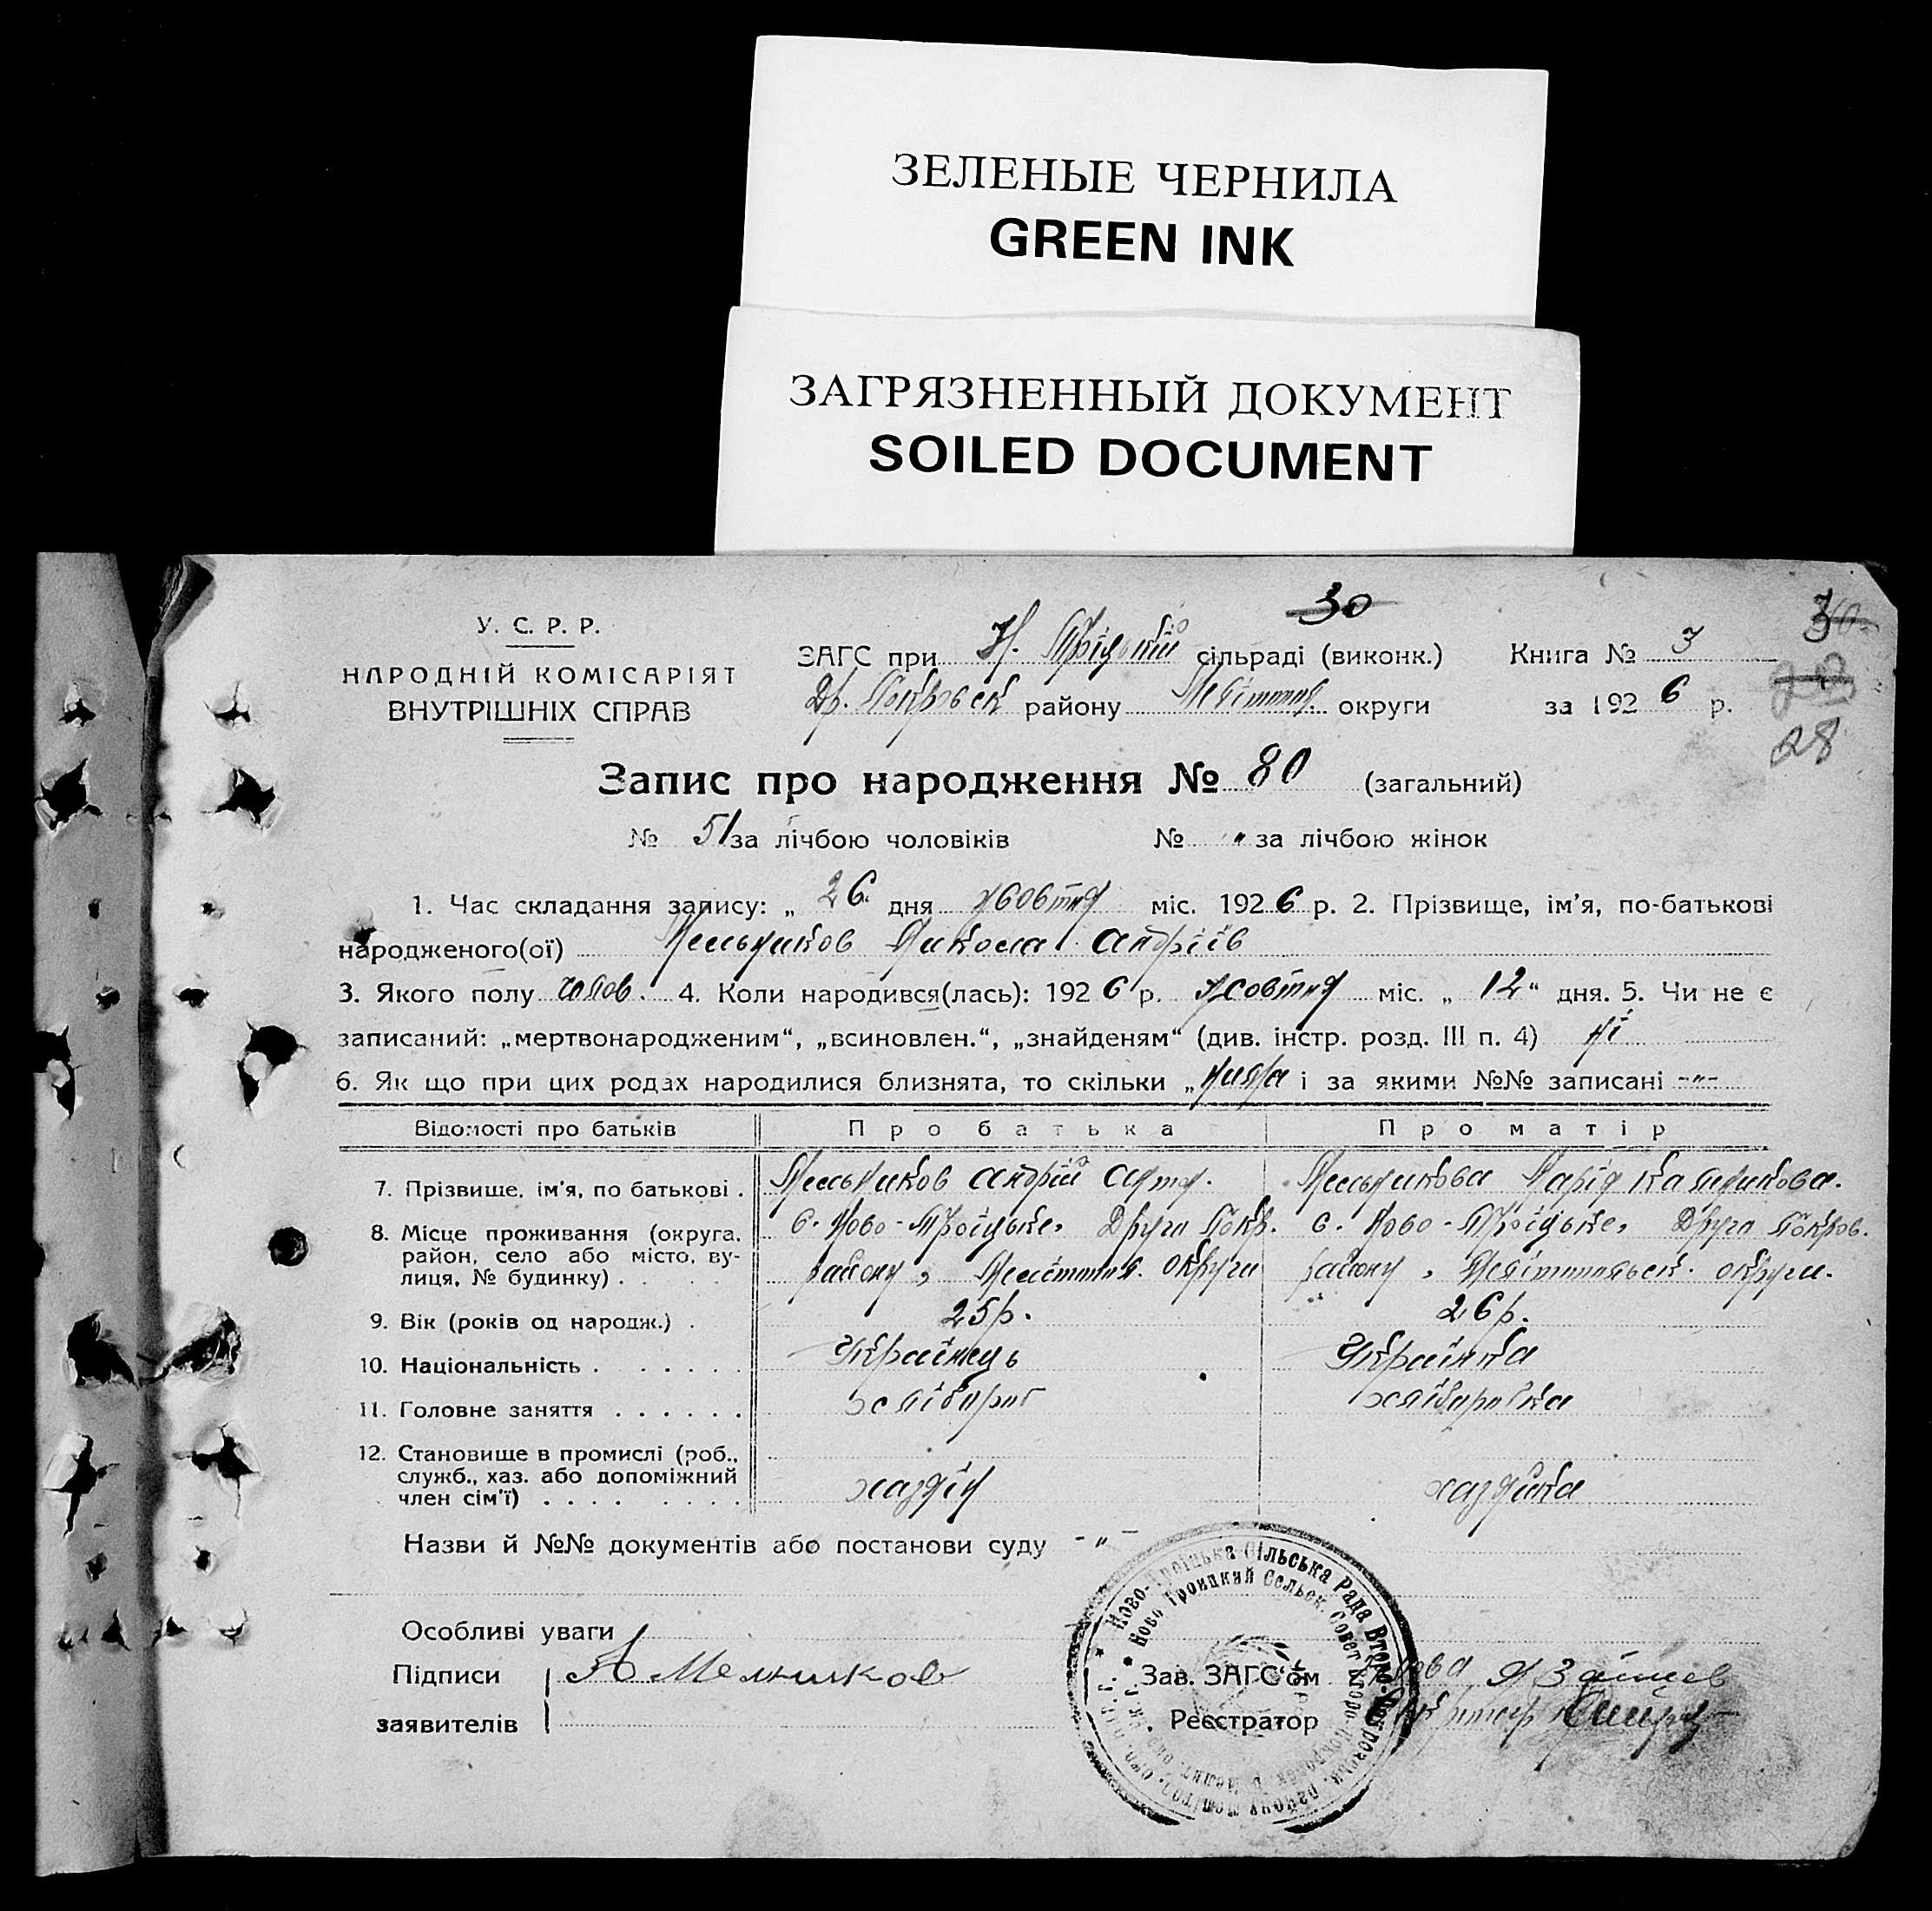 ЗЕЛЕНЫЕ ЧЕРНИЛА
GREEN INK
ЗАГРЯЗНЕННЫЙ ДОКУМЕНТ
SOILED DOCUMENT
30
У. С. Р. Р.
НАРОДНІЙ КОМІСАРІЯТ
ВНУТРІШНІХ СПРАВ
ЗАГС при Н. Троїцькій сільраді (виконк.) Книга № 3
Др. Покровск району Мелітоп. округи за 1926 р.
28
Запис про народження № 80 (загальний)
№ 51 за лічбою чоловіків № " за лічбою жінок
1. Час складання запису: „ 26 дня жовтня міс. 1926 р. 2. Прізвище, ім'я, по-батькові
народженого(ої) Мельников Микола Андріїв
3. Якого полу чолов. 4. Коли народився(лась): 1926 р. жовтня міс. „ 12 “ дня. 5. Чи не є
записаний: „мертвонародженим“, „всиновлен.“, „знайденям“ (див. інстр. розд. III п. 4) ні
6. Як що при цих родах народилися близнята, то скільки „ і за якими №№ записані -"-
Відомості про батьків Про батька Про матір
7. Прізвище, ім'я, по батькові . Мельников Андрій Мельникова Марія
8. Місце проживання (округа, с. Ново-Троїцьке, Друго Покр. с. Ново-Троїцьке, Друго Покров.
район, село або місто, ву-
лиця, № будинку) . району, Мелітопол. округи району, Мелітопольськ. округи.
9. Вік (років од народж.) . 25 р. 26 р.
10. Національність . Українець Українка
11. Головне заняття . хлібороб хліборобка
12. Становище в промислі (роб.,
служб., хаз. або допоміжний
член сім'ї) . хазяїн хазяйка
Назви й №№ документів або постанови суду -"-
Особливі уваги
Підписи А Мелников Зав. ЗАГС'ом Голова Я Зайцев
заявителів Реєстратор
Ново-Троїцька Сільська Рада Второ-Покровськ. району
Ново Троицкий Сельск. Совет Второ-Покровск